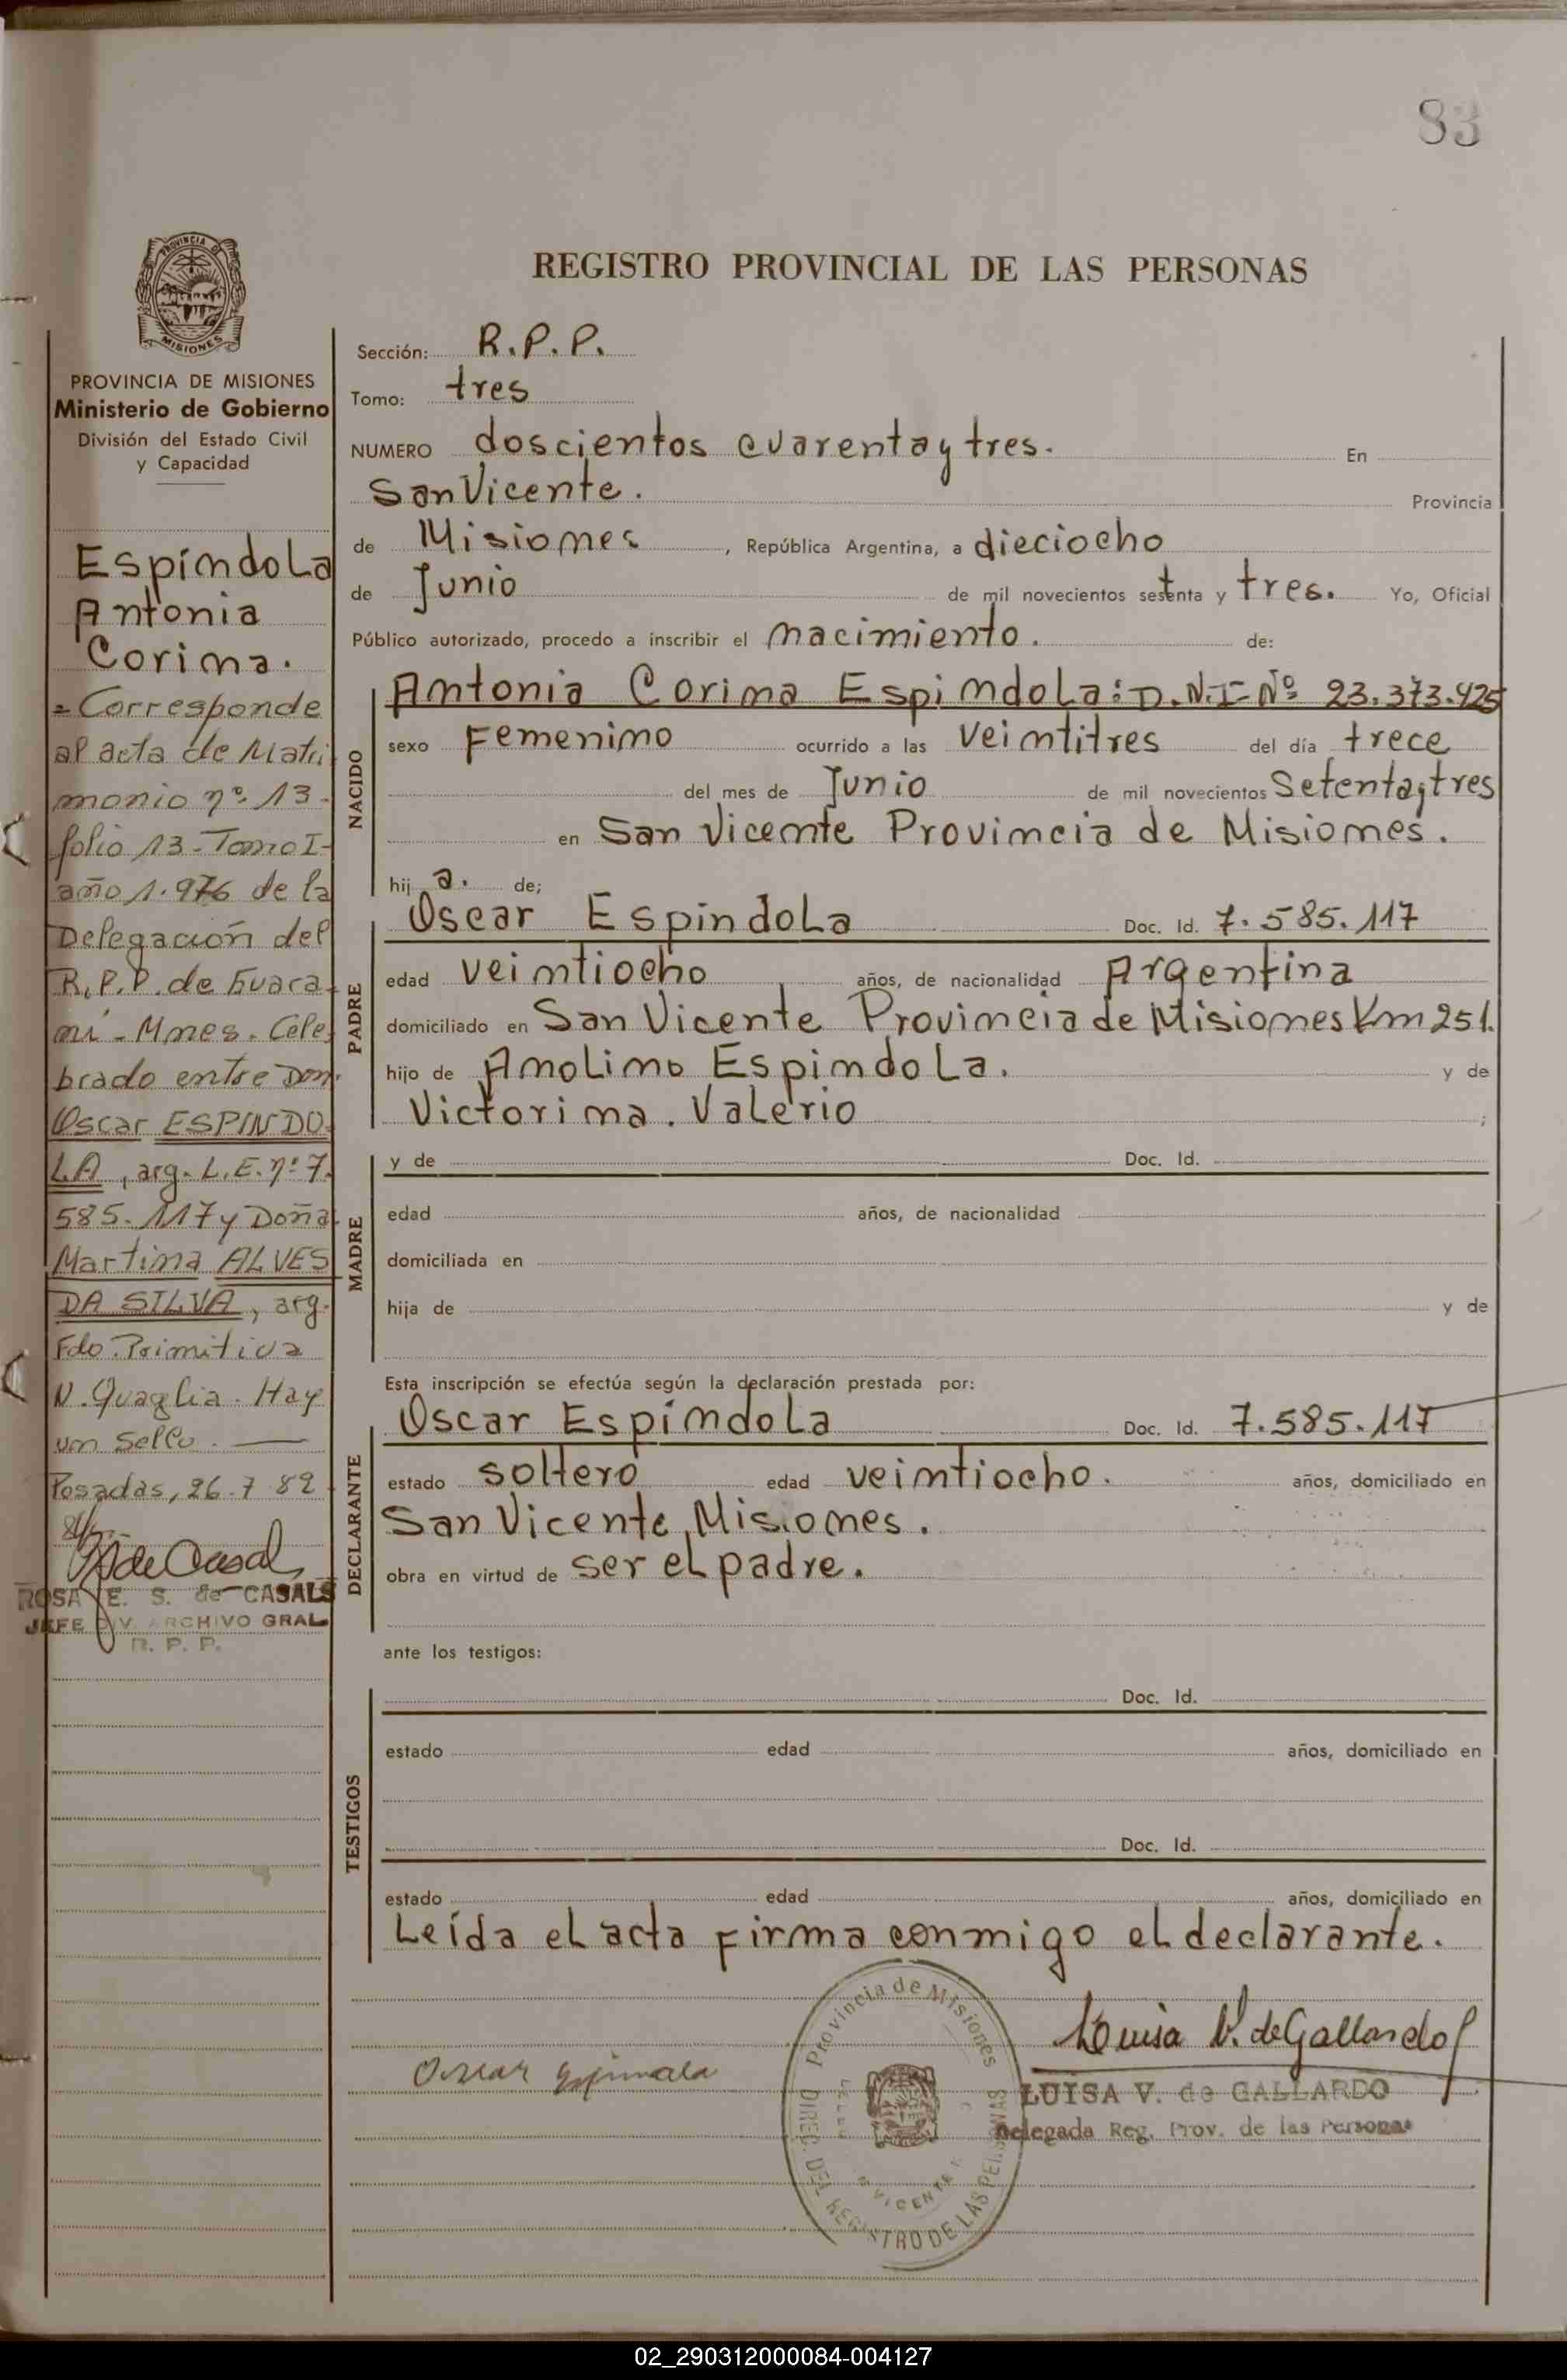 83
PROVINCIA DE
MISIONES
PROVINCIA DE MISIONES
Ministerio de Gobierno
División del Estado Civil
y Capacidad
Espíndola
Antonia
Corina.
= Corresponde
al acta de Matri
monio nº. 13-
folio 13-Tomo I-
año 1.976 de la
Delegación del
R.P.P. de Guara-
ní - Mnes. Cele,
brado entre Don.
Oscar ESPINDO-
LA, arg. L.E. nº 7.
585.117 y Doña
Martina ALVES
DA SILVA, arg.
Fdo. Primitiva
N. Quaglia. Hay
un sello.
Posadas, 26.7.82
ROSA E. S. de CASALS
JEFE DIV. ARCHIVO GRAL
R. P. P.
REGISTRO PROVINCIAL DE LAS PERSONAS
Sección: R.P.P.
Tomo: tres
NUMERO doscientos cuarenta y tres. En
San Vicente. Provincia
de Misiones, República Argentina, a dieciocho
de Junio de mil novecientos setenta y tres. Yo, Oficial
Público autorizado, procedo a inscribir el nacimiento. de:
NACIDO
Antonia Corina Espindola: D.N.I-Nº 23.373.425
sexo Femenino ocurrido a las veintitres del día trece
del mes de Junio de mil novecientos Setenta y tres
en San Vicente Provincia de Misiones.
hij a. de;
PADRE
Oscar Espindola Doc. Id. 7.585.117
edad veintiocho años, de nacionalidad Argentina
domiciliado en San Vicente Provincia de Misiones Km 251.
hijo de Anolino Espindola. y de
Victorina. Valerio ;
MADRE
y de Doc. Id.
edad años, de nacionalidad
domiciliada en
hija de y de
Esta inscripción se efectúa según la declaración prestada por:
DECLARANTE
Oscar Espíndola Doc. Id. 7.585.117
estado soltero edad veintiocho. años, domiciliado en
San Vicente, Misiones.
obra en virtud de ser el padre.
ante los testigos:
TESTIGOS
Doc. Id.
estado edad años, domiciliado en
Doc. Id.
estado edad años, domiciliado en
Leída el acta firma conmigo el declarante.
Oscar Espindola
Provincia de Misiones
DIREC. DEL REGISTRO DE LAS PERSONAS
S. VICENTE
Luisa V. de Gallardo
LUISA V. de GALLARDO
Delegada Reg. Prov. de las Personas
02_290312000084-004127